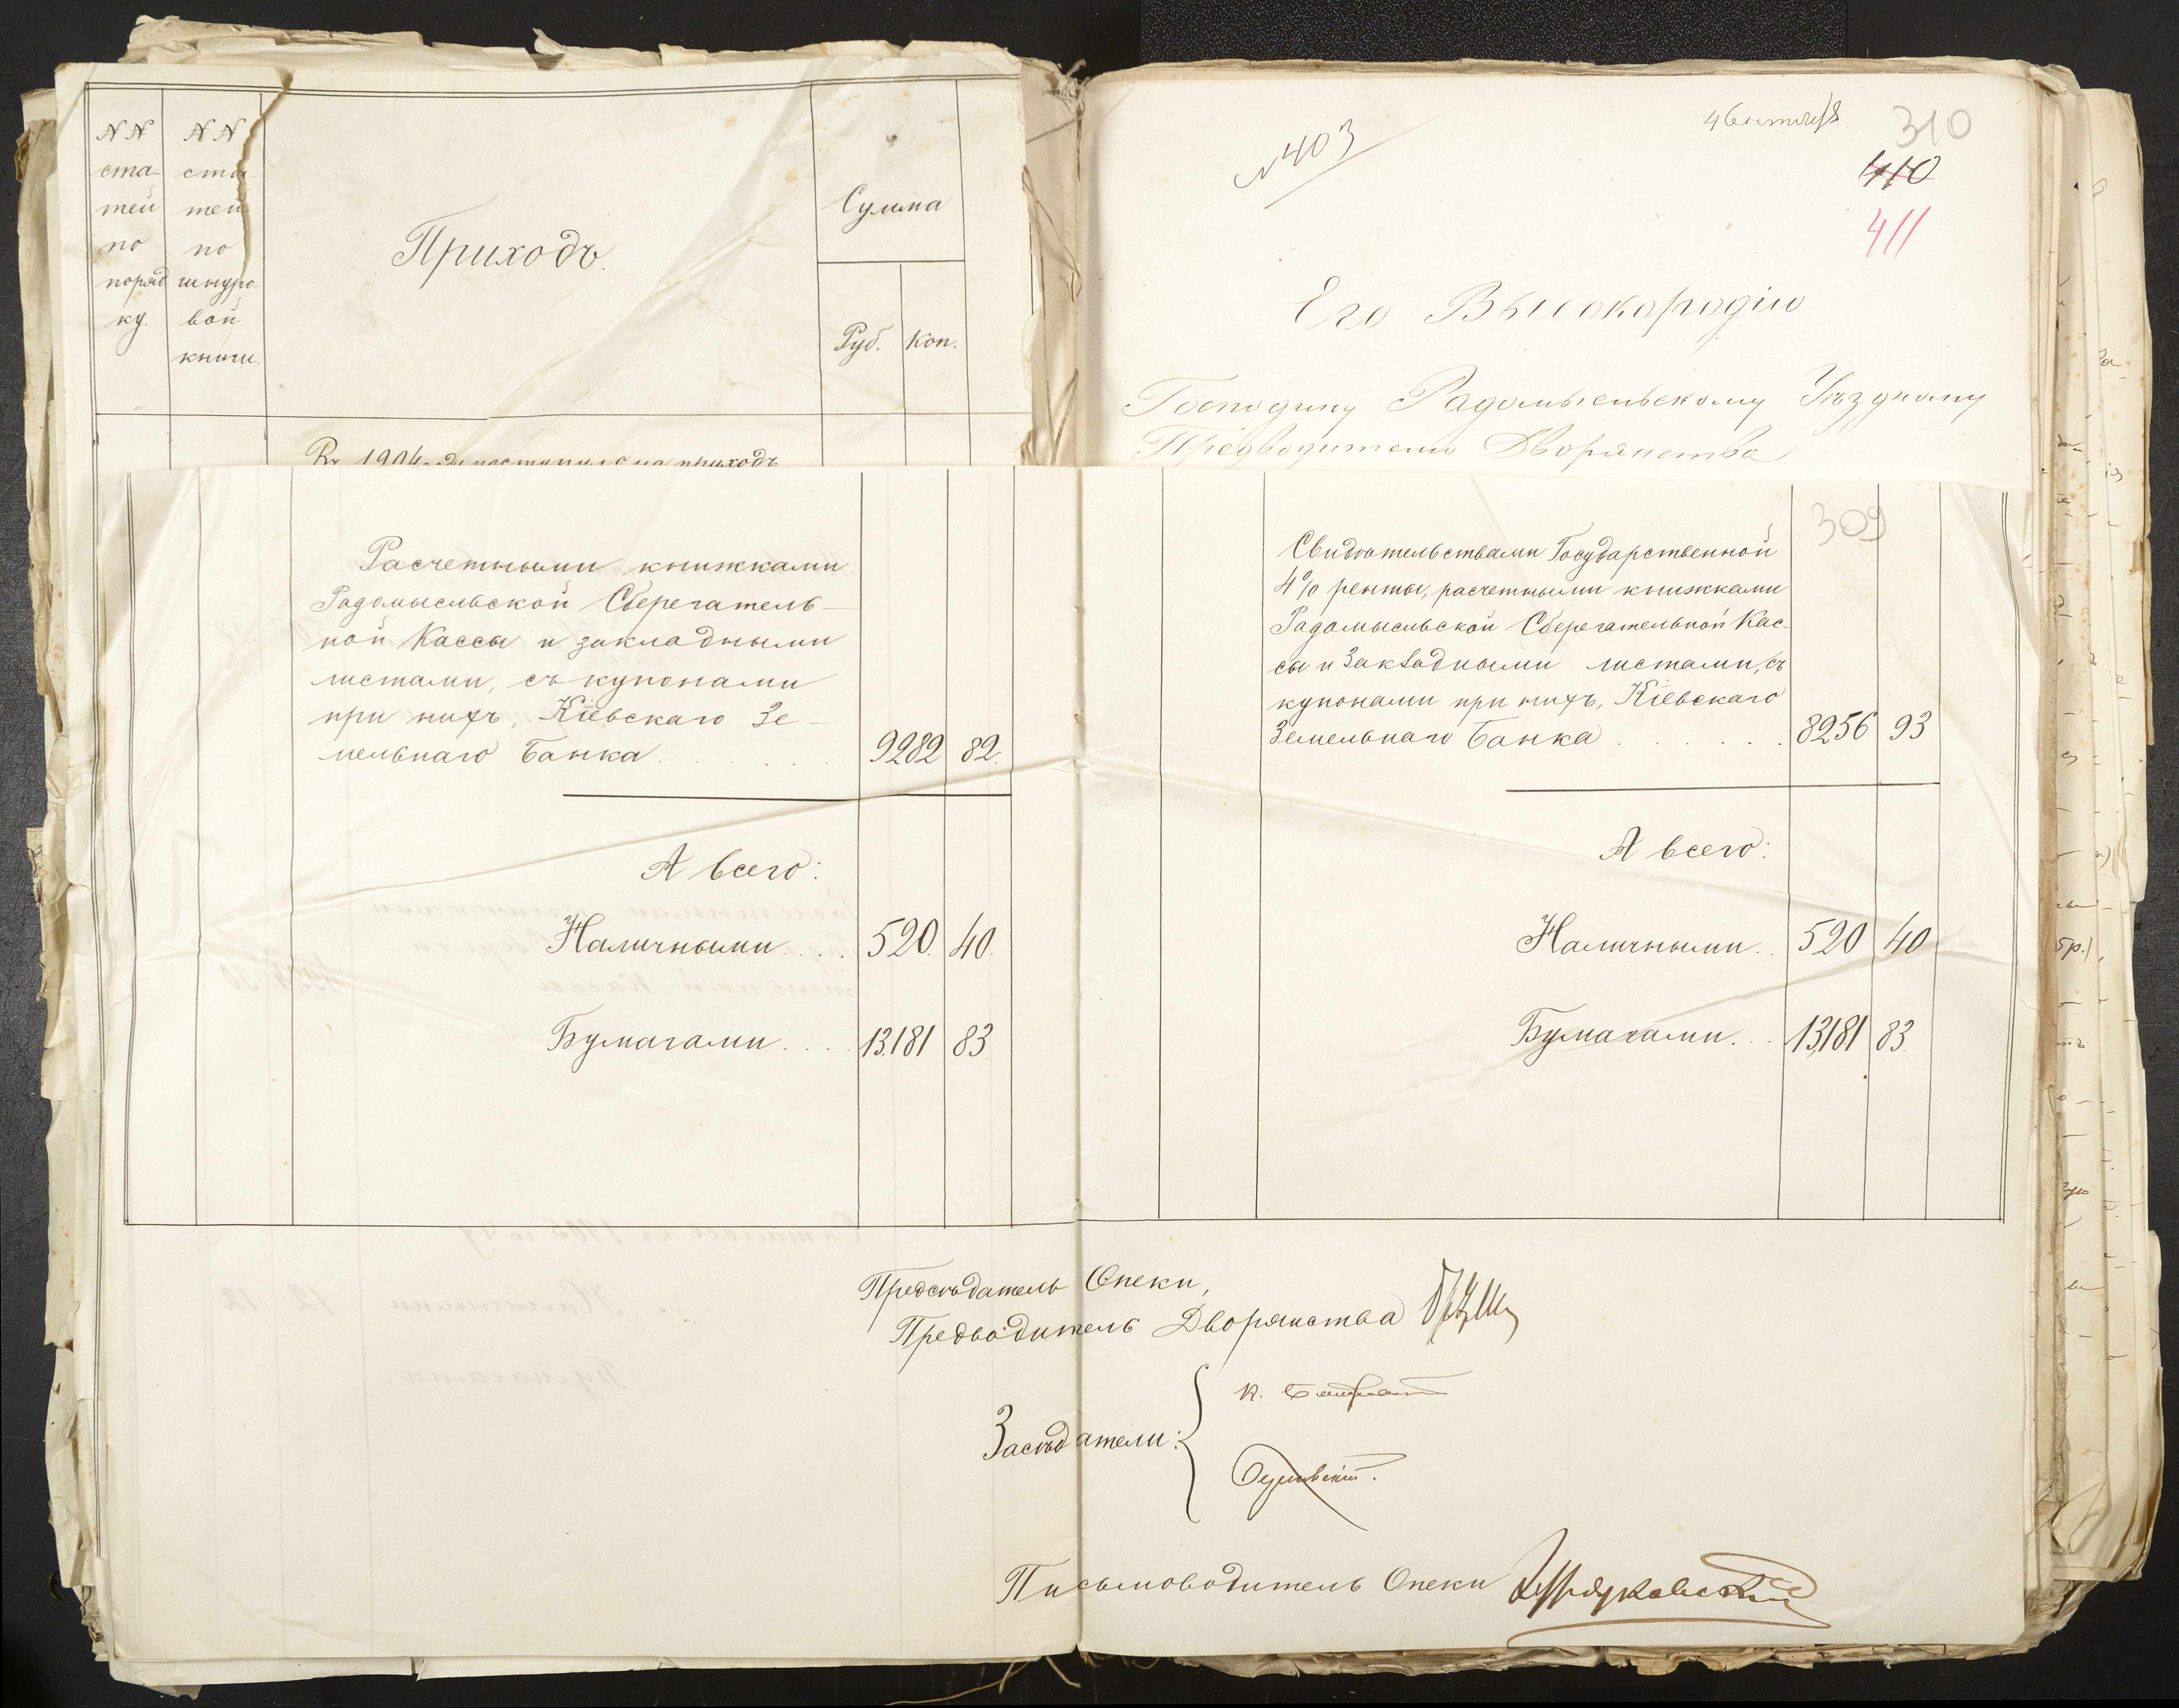 NN
ста-
тей
по
поряд
ку.
NN
ста
тей
по
шнуро
вой
книги.
Приходъ.
Сумма
Руб. Коп.
Въ 1904 году поступило на приходъ
№ 403
4 Сентября
310
410
411
Его Высокородію
Господину Радомысльскому Уѣздному
Предводителю Дворянства
Расчетными книжками
Радомысльской Сберегатель-
ной Кассы и закладными
листами, съ купонами
при нихъ, Кіевскаго Зе-
мельнаго Банка . . . . . 9282 82.
А всего:
Наличными . . . . 520. 40.
Бумагами . . . . 13,181 83.
309
Свидѣтельствами Государственной
4% ренты, расчетными книжками
Радомысльской Сберегательной Кас-
сы и Закладными листами, съ
купонами при нихъ, Кіевскаго
Земельнаго Банка . . . . . . . 8256 93
А всего:
Наличными . . 520 40
Бумагами . . . 13,181 83.
Предсѣдатель Опеки,
Предводитель Дворянства
Засѣдатели:
К.
Письмоводитель Опеки